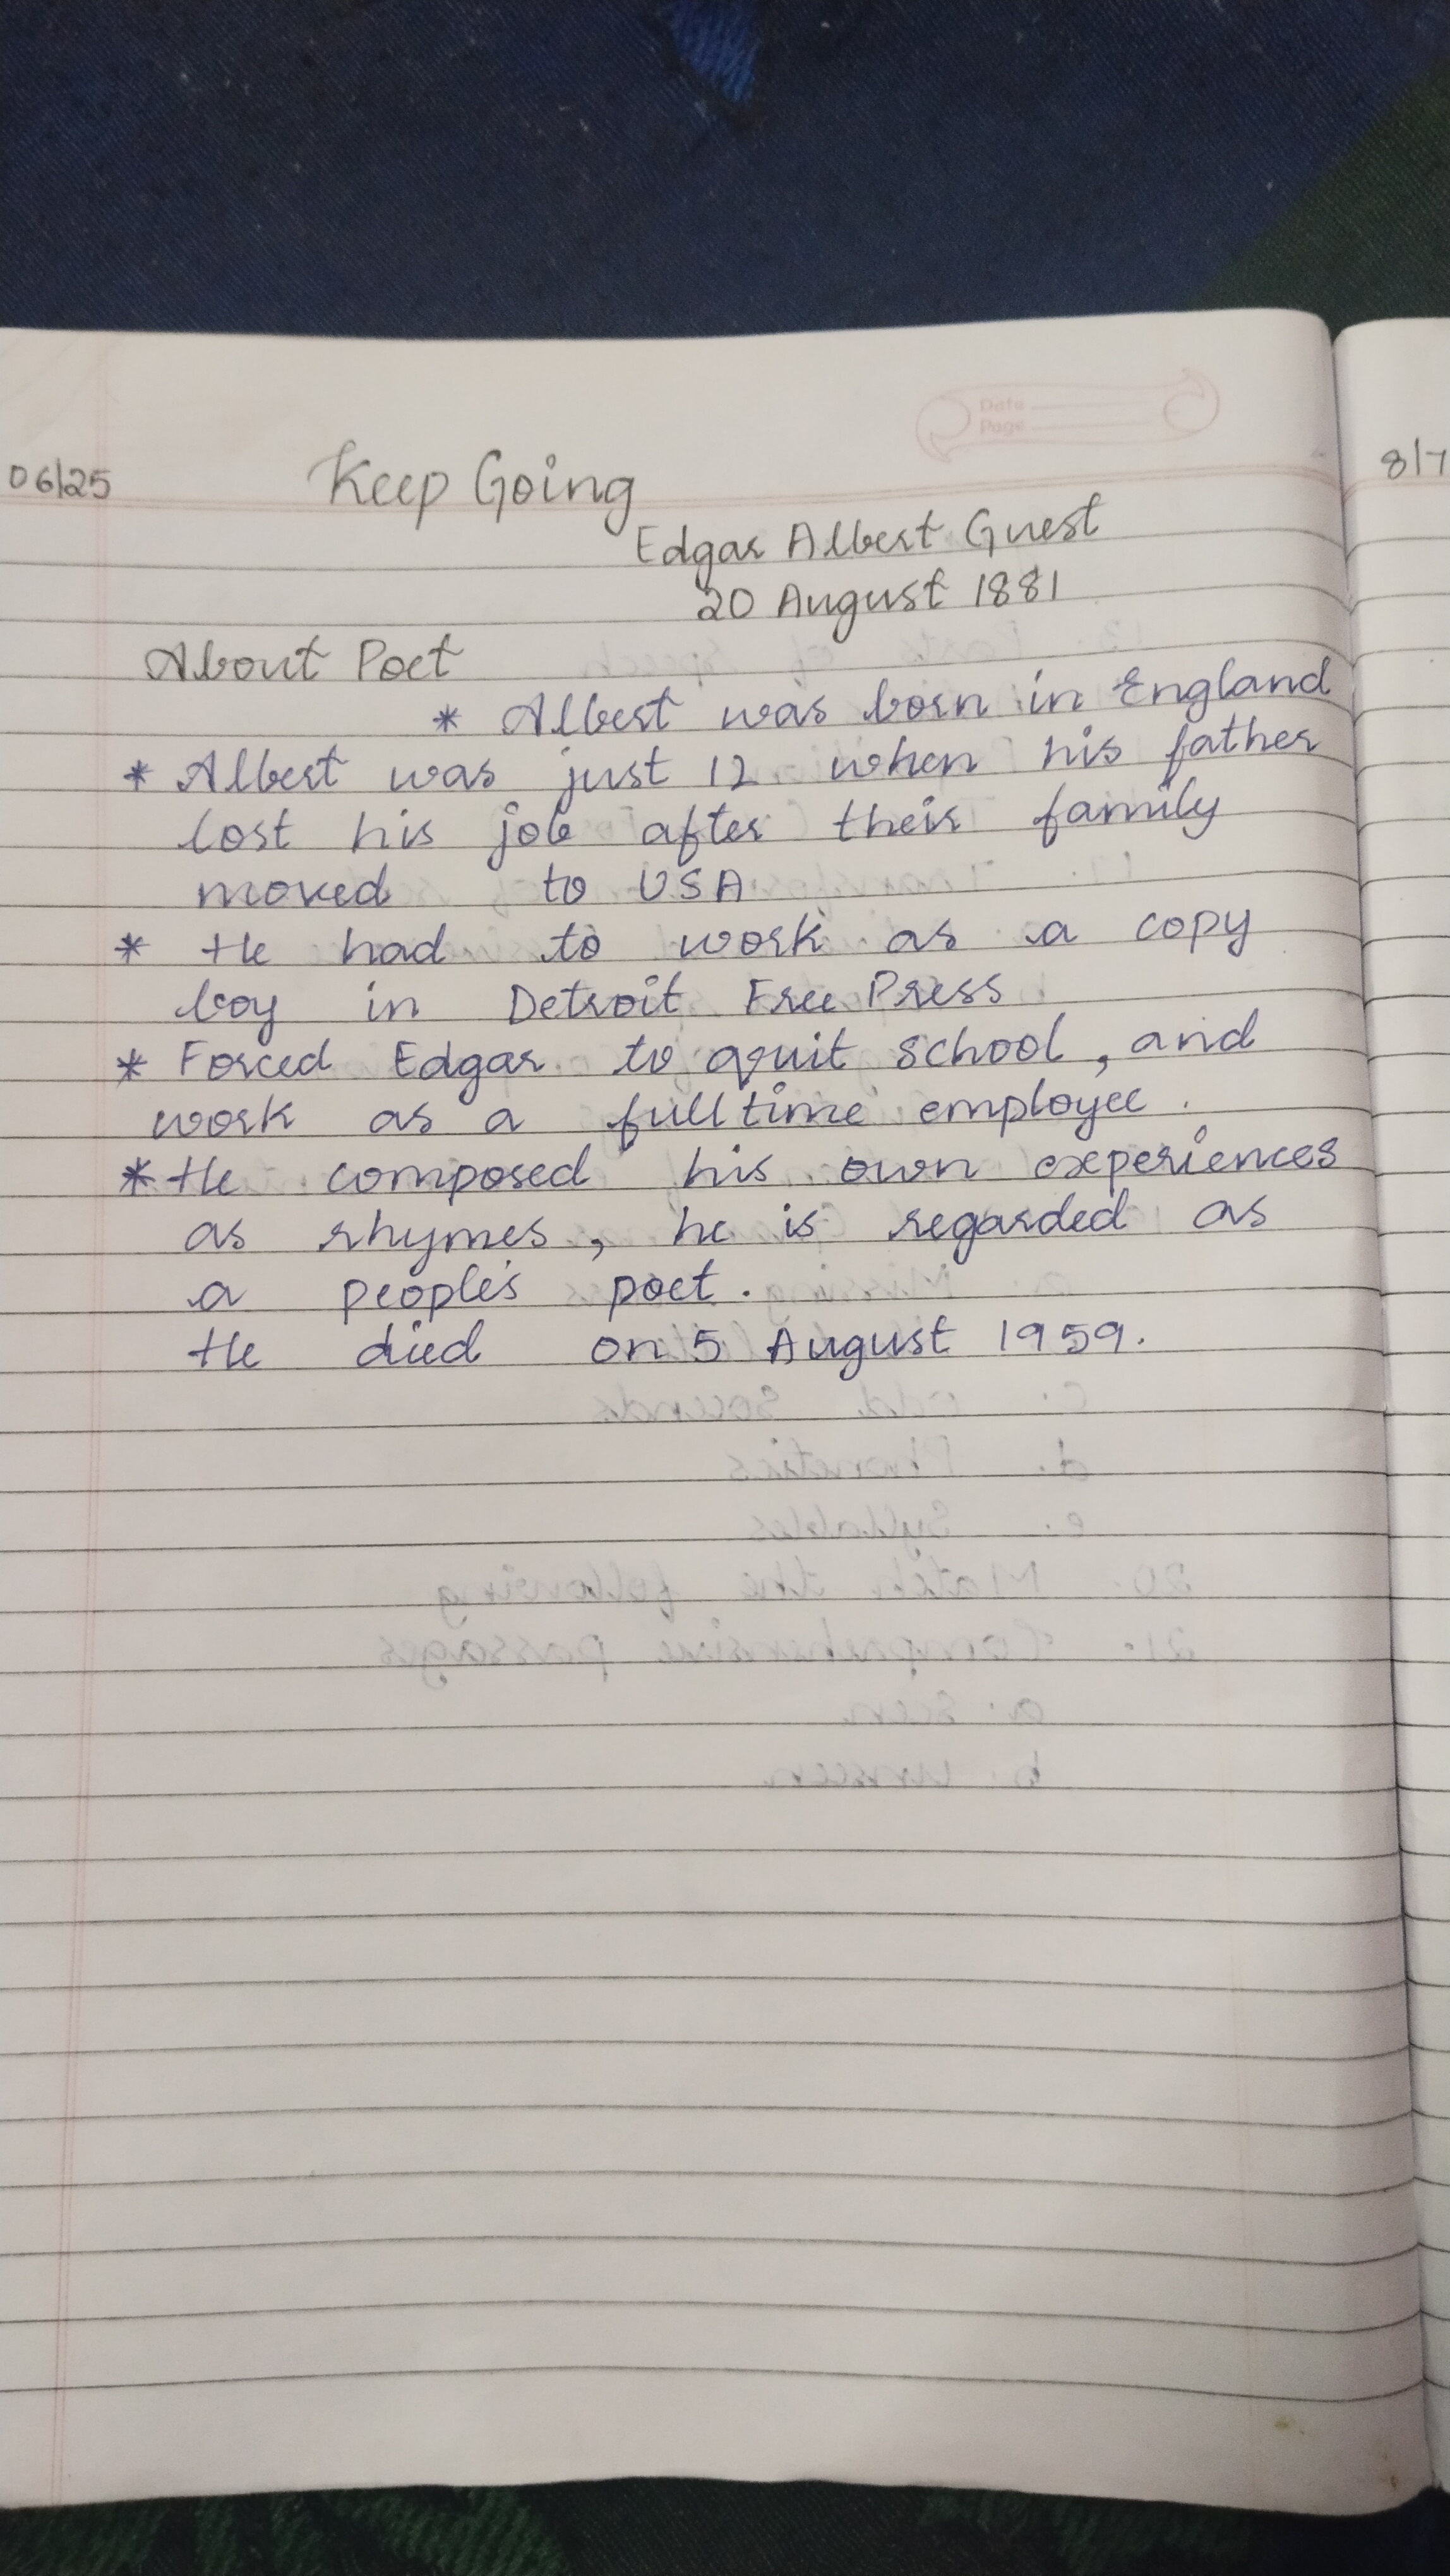 Date
Page
06/25
Keep Going
8/7
Edgar Albert Guest
20 August 1881
About Poet
* Albert was born in England
* Albert was just 12 when his father
lost his job after their family
moved to USA
* He had to work as a copy
boy in Detroit Free Press
* Forced Edgar to quit school, and
work as a full time employee.
* He composed his own experiences
as rhymes, he is regarded as
a people's poet.
He died on 5 August 1959.